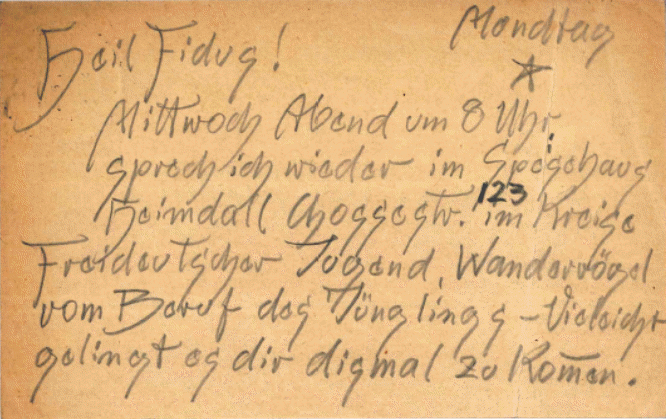 Mondtag
Heil Fidus!
Mittwoch Abend um 8 Uhr
sprech ich wieder im Speisehaus
Heimdall Chossestr. 123 im Kreise
Freideutscher Jugend, Wandervögel
vom Beruf des Jünglings – Vieleicht
gelingt es dir dismal zu Kom̄en.